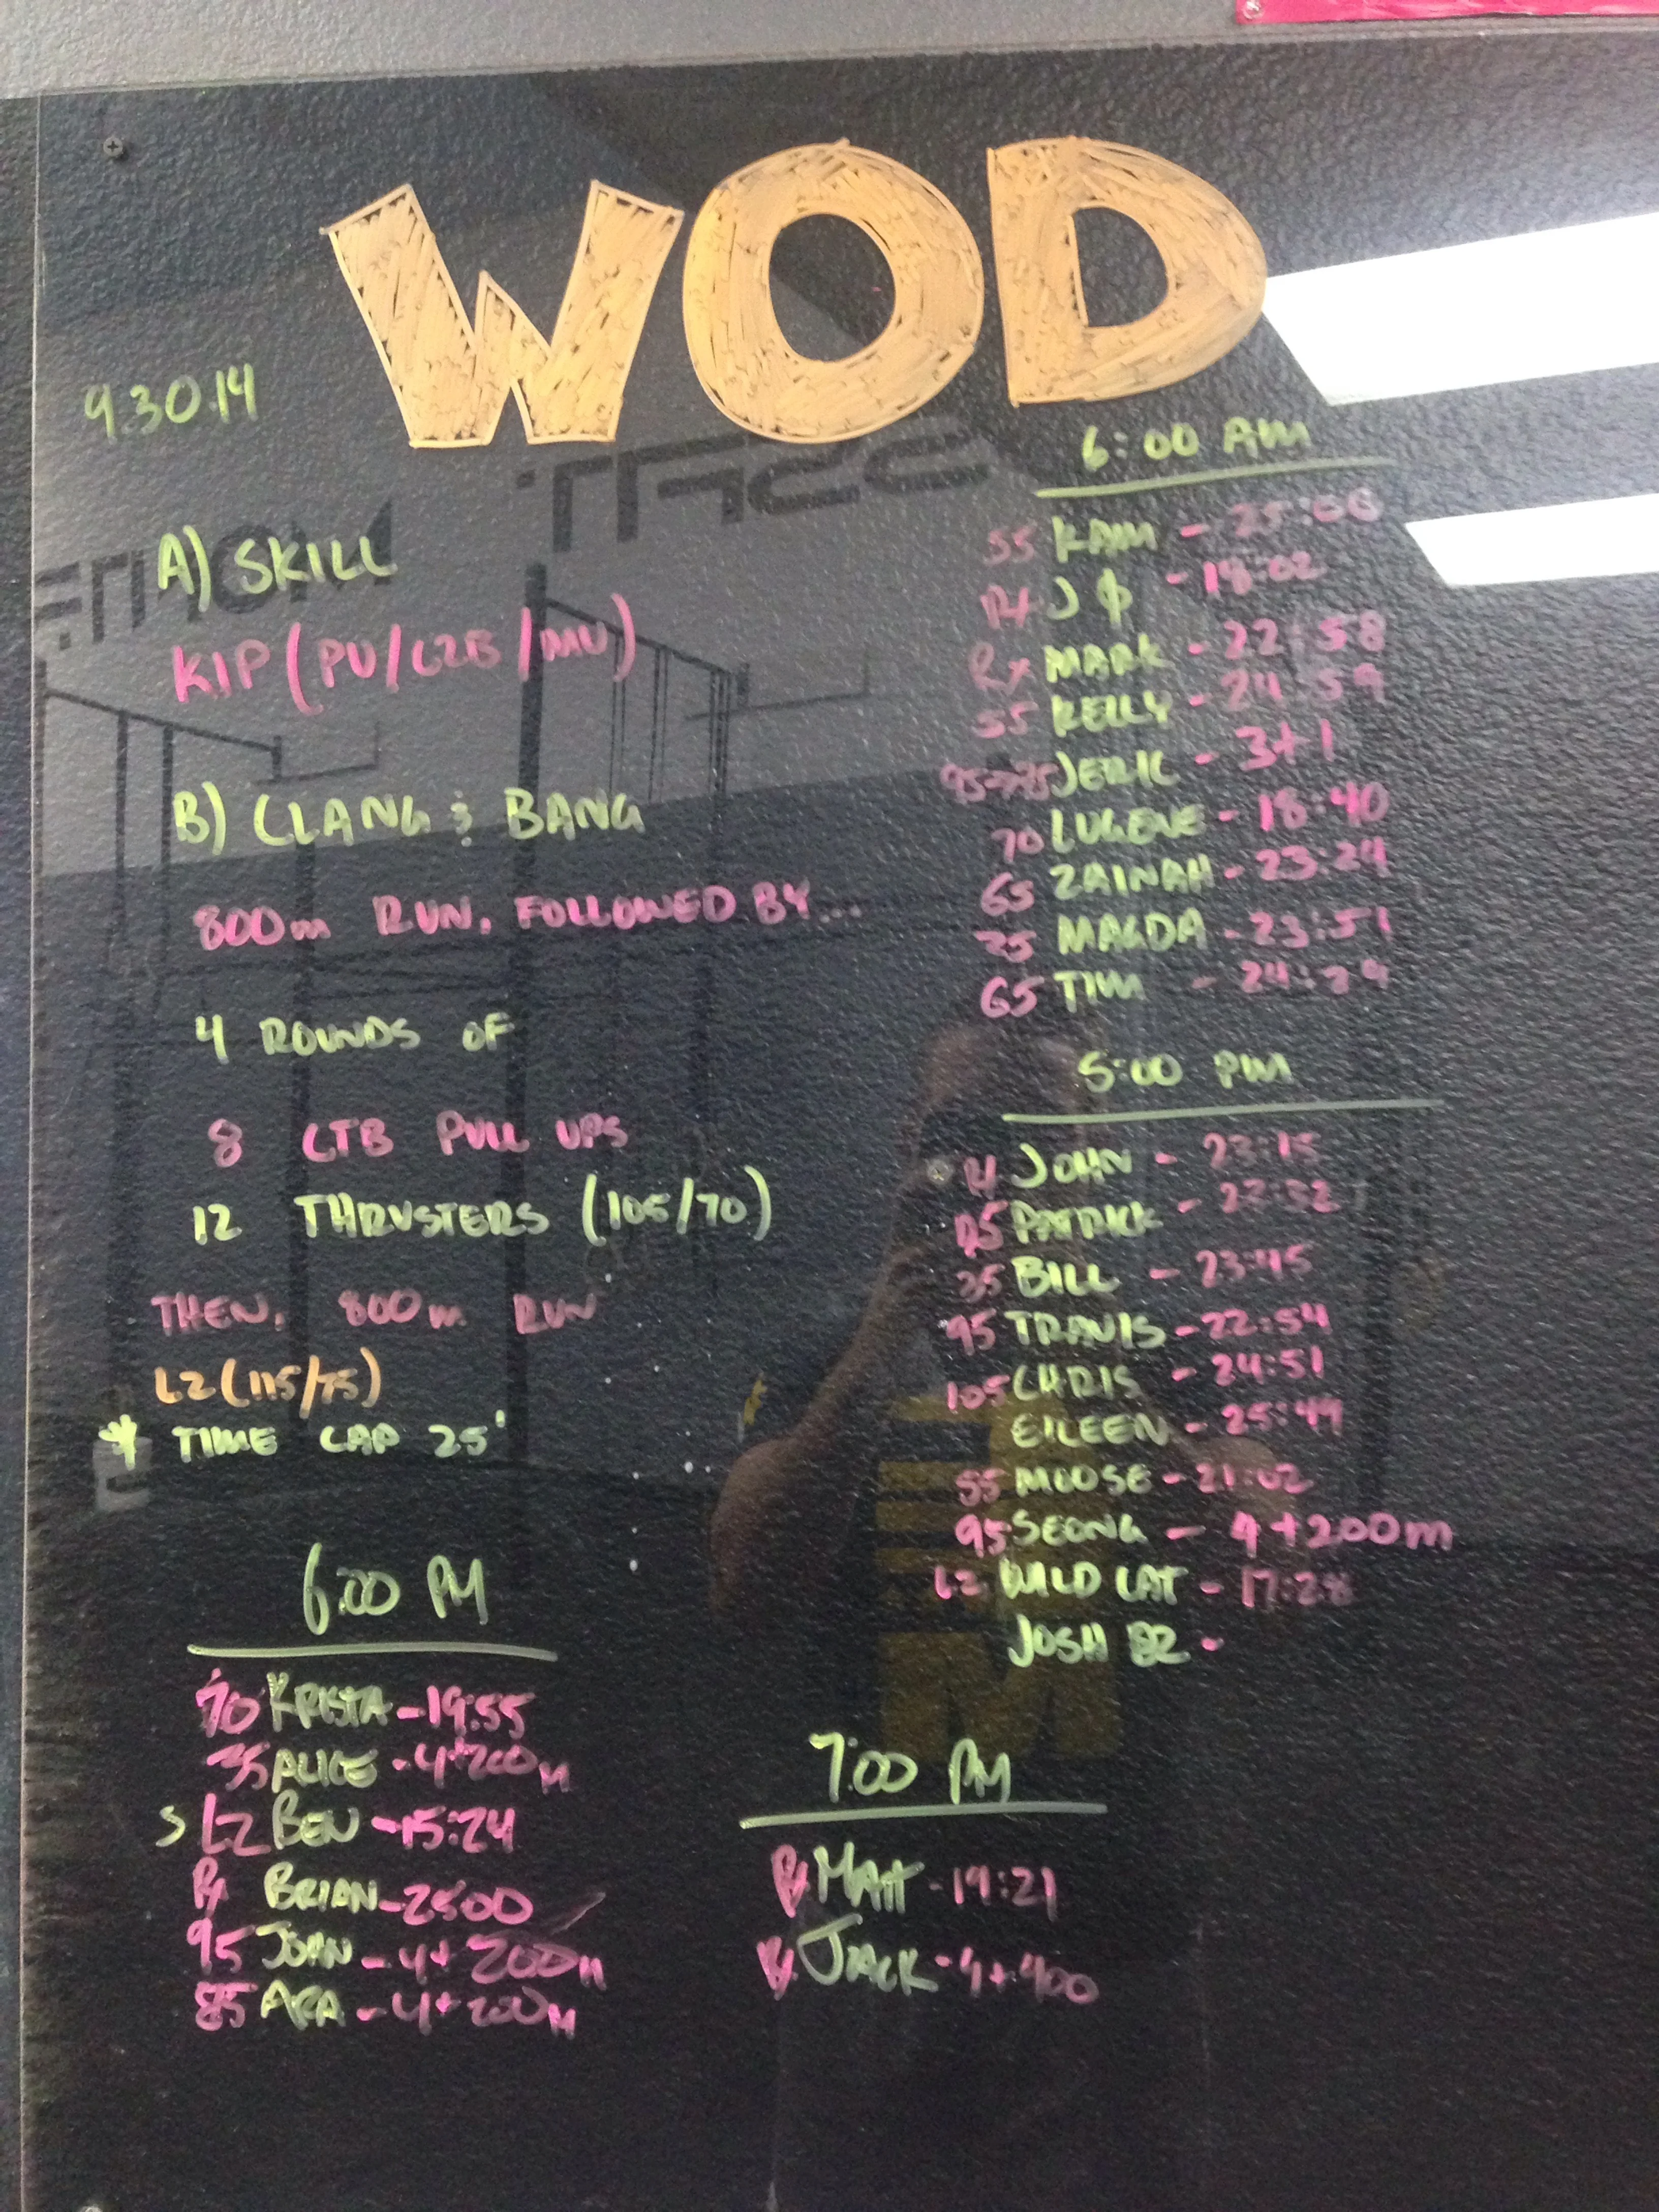 WOD
9.30.14
A) SKILL
KIP (PU/C2B/MU)
B) CLANG & BANG
800m RUN, FOLLOWED BY...
4 ROUNDS OF
8 CTB PULL UPS
12 THRUSTERS (105/70)
THEN, 800m RUN
L2 (115/75)
* TIME CAP 25'
6:00 AM
55 KAM - 25:06
RX J $ - 18:02
RX MARK - 22:58
55 KELLY - 24:59
JERIC - 3+1
70 LUGENE - 18:40
65 ZAINAH - 23:24
MAGDA - 23:51
65 TIM - 24:29
5:00 PM
JOHN - 23:15
PATRICK - 23:32
35 BILL - 23:45
95 TRAVIS - 22:54
105 CHRIS - 24:51
EILEEN - 25:49
55 MOOSE - 21:02
95 SEONG - 4+200m
L2 WILD CAT - 17:28
JOSH B2 -
6:00 PM
70 KRISTA - 19:55
35 ALICE - 4+200M
S L2 BEN - 15:24
RX BRIAN - 2500
95 JOHN - 4+200M
85 ARA - 4+200M
7:00 PM
RX MATT - 19:21
RX JACK - 4+400